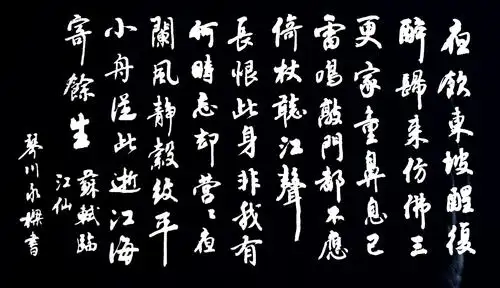 夜飲東坡醒復
醉歸来仿佛三
更家童鼻息已
雷鳴敲門都不應
倚杖聽江聲
長恨此身非我有
何時忘却營〻夜
闌風靜縠紋平
小舟從此逝江海
寄餘生
蘇軾臨
江仙
琴川永書